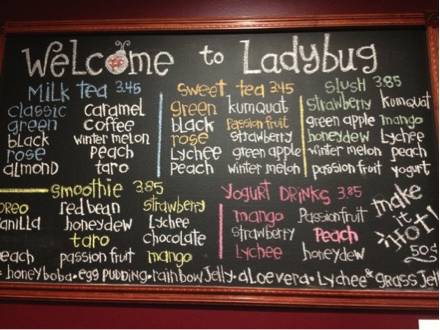 Welcome to Ladybug
Milk tea 3.45
classic caramel
green coffee
black winter melon
rose peach
almond taro
sweet tea 3.45
green kumquat
black passion fruit
rose strawberry
Lychee green apple
Peach winter melon
slush 3.85
strawberry kumquat
green apple mango
honeydew Lychee
winter melon peach
passion fruit yogurt
smoothie 3.85
oreo red bean strawberry
vanilla honeydew Lychee
taro chocolate
peach passion fruit mango
Yogurt Drinks 3.85
mango Passionfruit
strawberry Peach
Lychee honeydew
make
it
Hot!
50¢
honey boba • egg pudding • rainbow Jelly • aloe vera • Lychee & grass Jelly